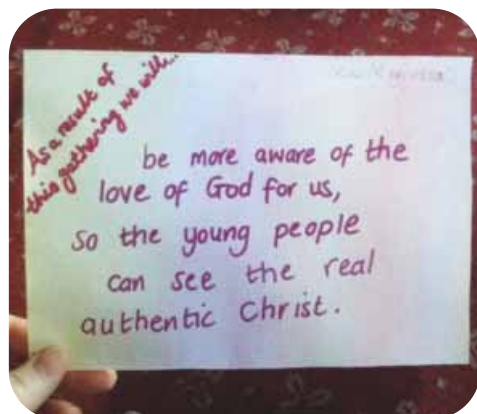 As a result of
this gathering we will...
be more aware of the
love of God for us,
so the young people
can see the real
authentic Christ.